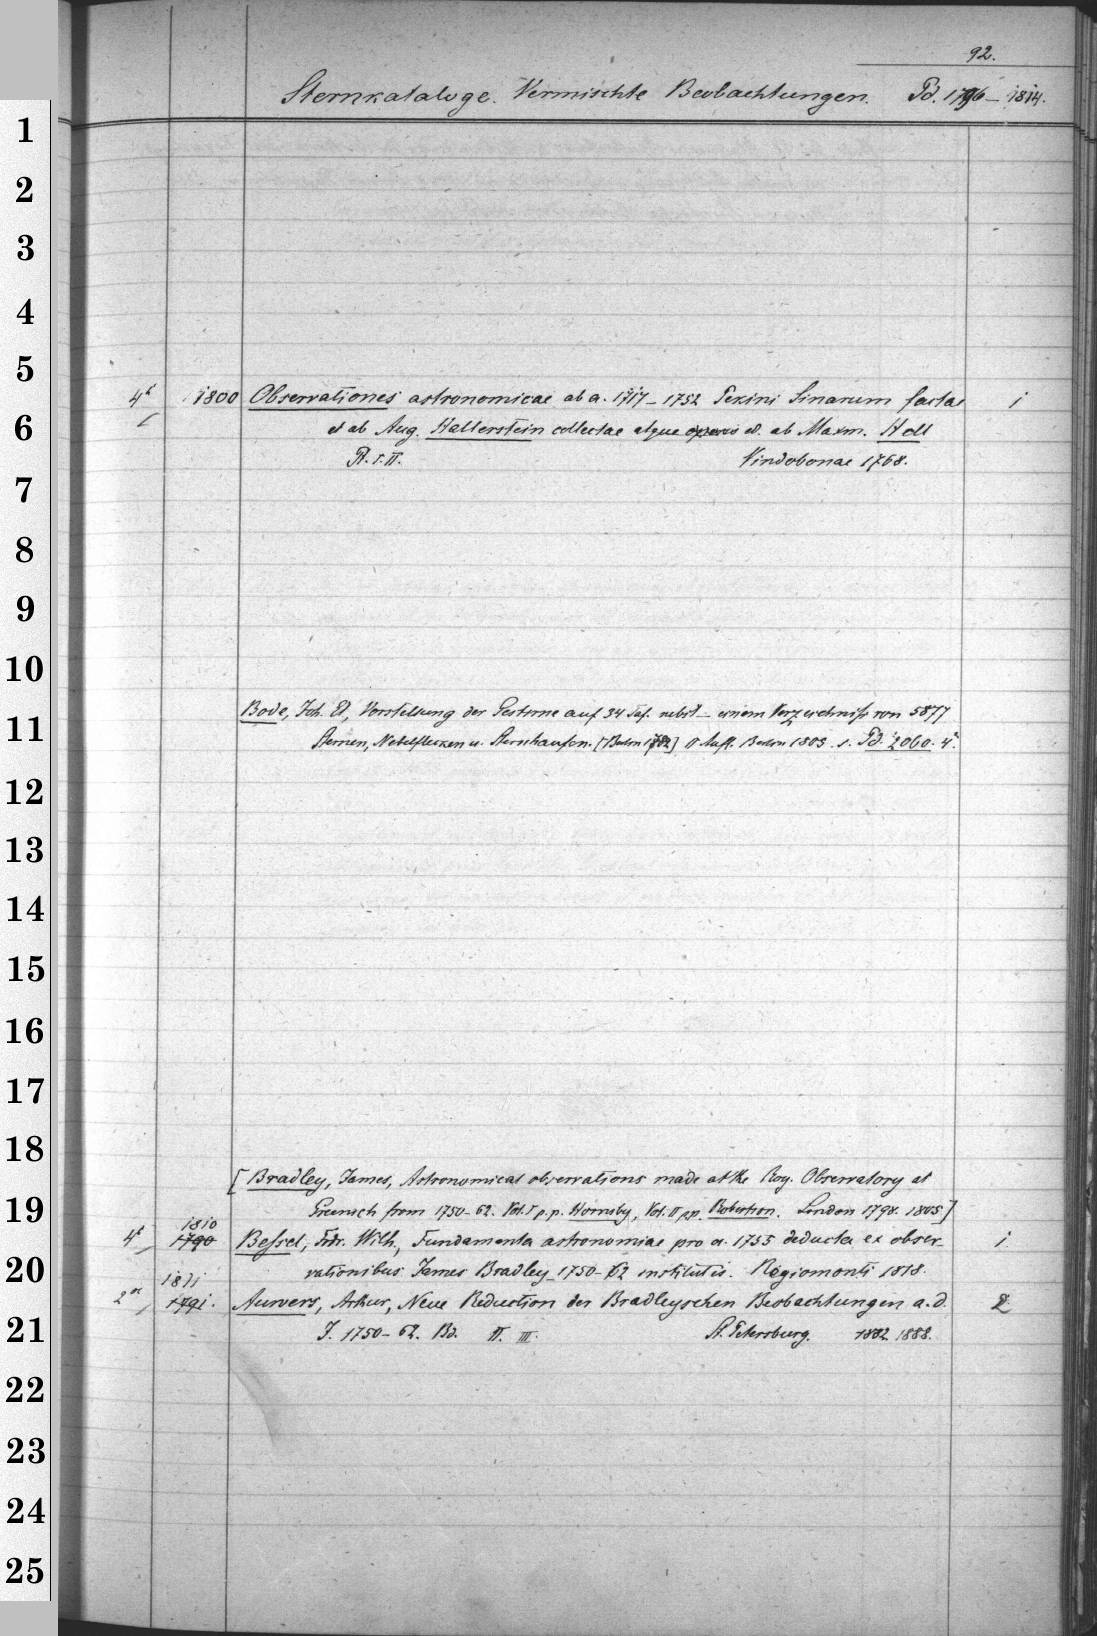 92.
Sternkataloge. Vermischte Beobachtungen. Pd. 1796 – 1814.
1
2
3
4
5
4° 1800 Observationes astronomicae ab a. 1717 – 1752 Pekini Sinarum factae 1
6
et ab Aug. Hallerstein collectae atque operis ed. ab Maxm. Hell
Pt. I. II. Vindobonae 1768.
7
8
9
10
11
Bode, Joh. El, Vorstellung der Gestirne auf 34 Taf. nebst einem Verzeichniß von 5877
Sternen, Nebelflecken u. Sternhaufen. [Berlin 1782] II Aufl. Berlin 1805. s. Pd. 2060. 4°.
12
13
14
15
16
17
18
[Bradley, James, Astronomical observations made at the Roy. Observatory at
19
Greenwich from 1750–62. Vol. I p.p. Hornsby, Vol. II pp. Robertson. London 1798. 1805]
1810
4° 1790 Bessel, Fdr. Wilh., Fundamenta astronomiae pro a. 1755 deducta ex obser- 1
20
vationibus James Bradley 1750–62 institutis. Regiomonti 1818.
1811
2° 1791. Auwers, Arthur, Neue Reduction der Bradleyschen Beobachtungen a.d. 2
21
J. 1750–62. Bd. II. III. St. Petersburg. 1882. 1888.
22
23
24
25